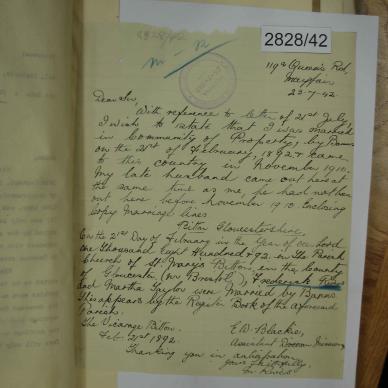 2828/42
119a Queen's Rd,
Mayfair
23-7-42.
Dear Sir,
With reference to letter of 21st July
I wish to state that I was married
in Community of Property, by Banns
on the 21st of February, 1892 & came
to this country in November 1910.
My late husband came out here at
the same time as me, he had not been
out here before November 1910. Enclosing
Copy Marriage lines
Bitton Gloucestershire
On the 21st Day of February in the Year of our Lord
One Thousand Eight Hundred & 92. in The Parish
Church of St. Mary's Bitton, in the County
of Gloucester (nr Bristol), Frederick
and Martha Taylor were married by Banns
This appears by the Register Book of the aforesaid
Parish.
The Vicarage Bitton.
Feb. 21st 1892.
E W Blackie,
Assistant
Thanking you in anticipation
Yours faithfully,